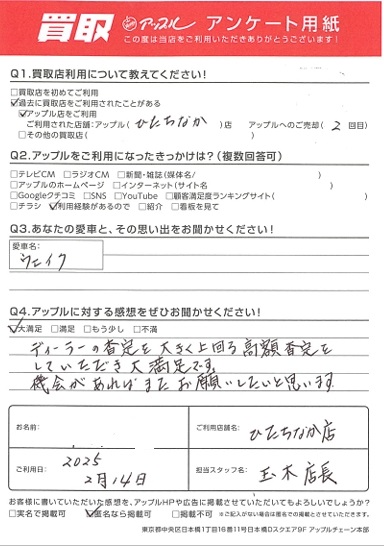 買取 アップル アンケート用紙
この度は当店をご利用いただきありがとうございます!
Q1.買取店利用について教えてください!
□買取店を初めてご利用
☑過去に買取店をご利用されたことがある
☑アップル店をご利用
ご利用された店舗:アップル( ひたちなか )店 アップルへのご売却( 2 回目)
□その他の買取店( )
Q2.アップルをご利用になったきっかけは?(複数回答可)
□テレビCM □ラジオCM □新聞・雑誌(媒体名/ )
□アップルのホームページ □インターネット(サイト名 )
□Googleクチコミ □SNS □YouTube □顧客満足度ランキングサイト( )
□チラシ ☑利用経験があるので □紹介 □看板を見て
Q3.あなたの愛車と、その思い出をお聞かせください!
愛車名:
ウェイク
Q4.アップルに対する感想をぜひお聞かせください!
☑大満足 □満足 □もう少し □不満
ディーラーの査定を大きく上回る高額査定を
していただき大満足です。
機会があればまたお願いしたいと思います
お名前:
ご利用店舗名: ひたちなか店
ご利用日: 2025
2月14日
担当スタッフ名: 玉木店長
お客様に書いていただいた感想を、アップルHPや広告に掲載させていただいてもよろしいでしょうか?
□実名で掲載可 ☑匿名なら掲載可 □掲載不可 ※ご記入がない場合は匿名での掲載とさせていただきます。
東京都中央区日本橋1丁目16番11号日本橋Dスクエア9F アップルチェーン本部